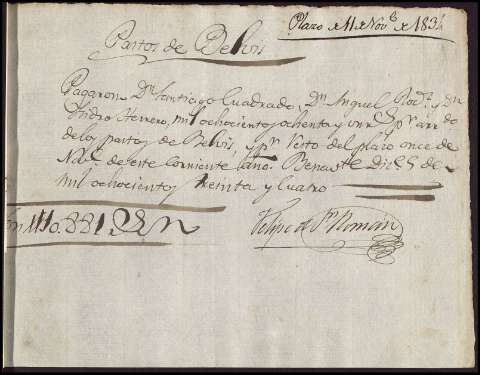 Plazo de 11 de Nov.e de 1834
Pastos de Belvis
Pagaron Dn Santiago Cuadrado, Dn Miguel Rodz. y Dn
Isidro Herrero, mil ochocientos ochenta y un rs pr arrdo
de los pastos de Belvis, y pr resto del plazo once de
Nove. de este corriente año. Benavte Dice 5 de
mil ochocientos treinta y cuatro
Son 1U0.881 rs vn
Felipe de Sn Román